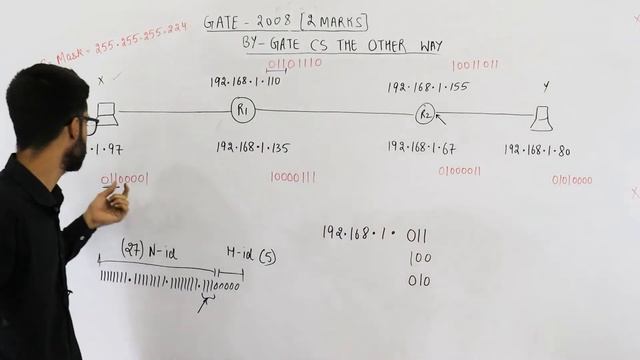 GATE - 2008 [2 MARKS]
Mask = 255.255.255.224
BY - GATE CS THE OTHER WAY
01101110
10011011
X
192.168.1.110
192.168.1.155
Y
R1
R2
.1.97
192.168.1.135
192.168.1.67
192.168.1.80
01100001
10000111
01000011
01010000
(27) N-id
H-id (5)
11111111.11111111.11111111.11100000
192.168.1. 011
100
010